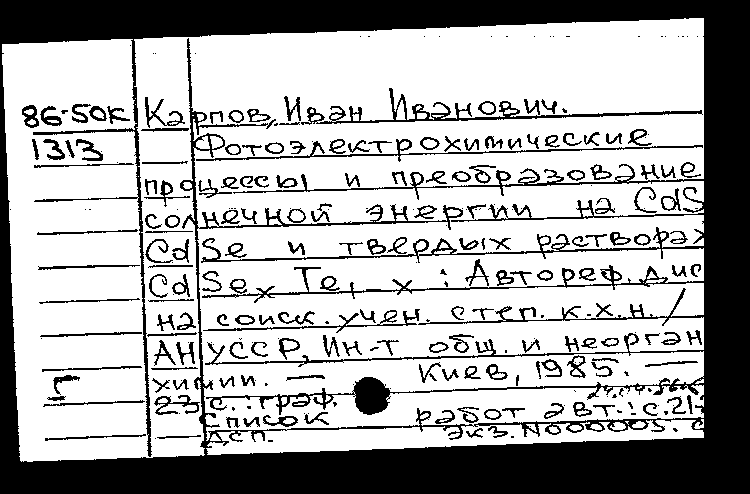 86-50к Карпов, Иван Иванович.
1313 Фотоэлектрохимические
процессы и преобразование
солнечной энергии на CdS
CdSe и твердых растворах
CdSex Te1-x : Автореф. дис
на соиск. учен. степ. к.х.н. /
АН УССР, Ин-т общ. и неорган
химии. — Киев, 1985. —
23 с. : граф.
Список работ авт.: с. 21-
Дсп. Экз. N000005.